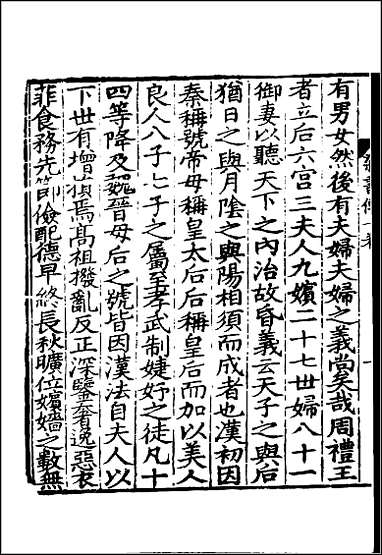 有男女然後有夫婦夫婦之義尚矣哉周禮王
者立后六宮三夫人九嬪二十七世婦八十一
御妻以聽天下之內治故昏義云天子之與后
猶日之與月陰之與陽相須而成者也漢初因
秦稱號帝母稱皇太后后稱皇后而加以美人
良人八子七子之屬至孝武制婕妤之徒凡十
四等降及魏晉母后之號皆因漢法自夫人以
下世有增損焉高祖撥亂反正深鑒奢逸惡衣
菲食務先節儉配德早終長秋曠位嬪嬙之數無